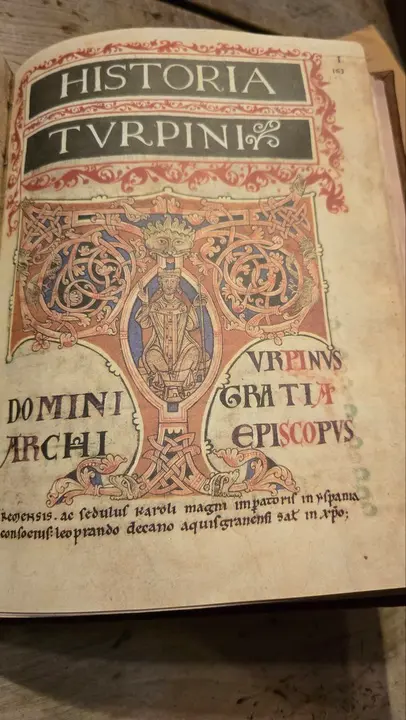 I
163
HISTORIA
TVRPINI
VRPINVS
DOMINI GRATIA
ARCHI EPISCOPVS
Remensis. ac sedulus karoli magni impatoris in yspania
consocius: leoprando decano aquisgranensi salt in xpo;